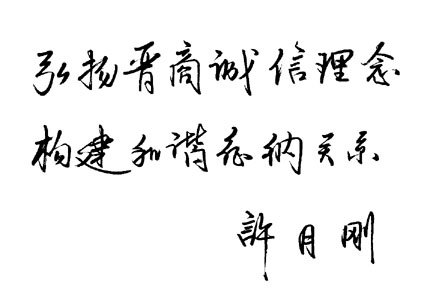 弘扬晋商诚信理念
构建和谐征纳关系
許月刚